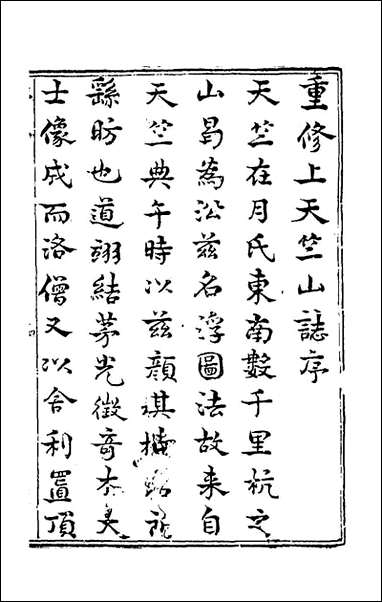 重修上天竺山誌序
天竺在月氏東南數千里杭之
山曷為沿兹名浮圖法故来自
天竺典午時以兹顔祺
繇昉也道翊結茅光徵奇木大
士像成而洛僧又以舍利置頂